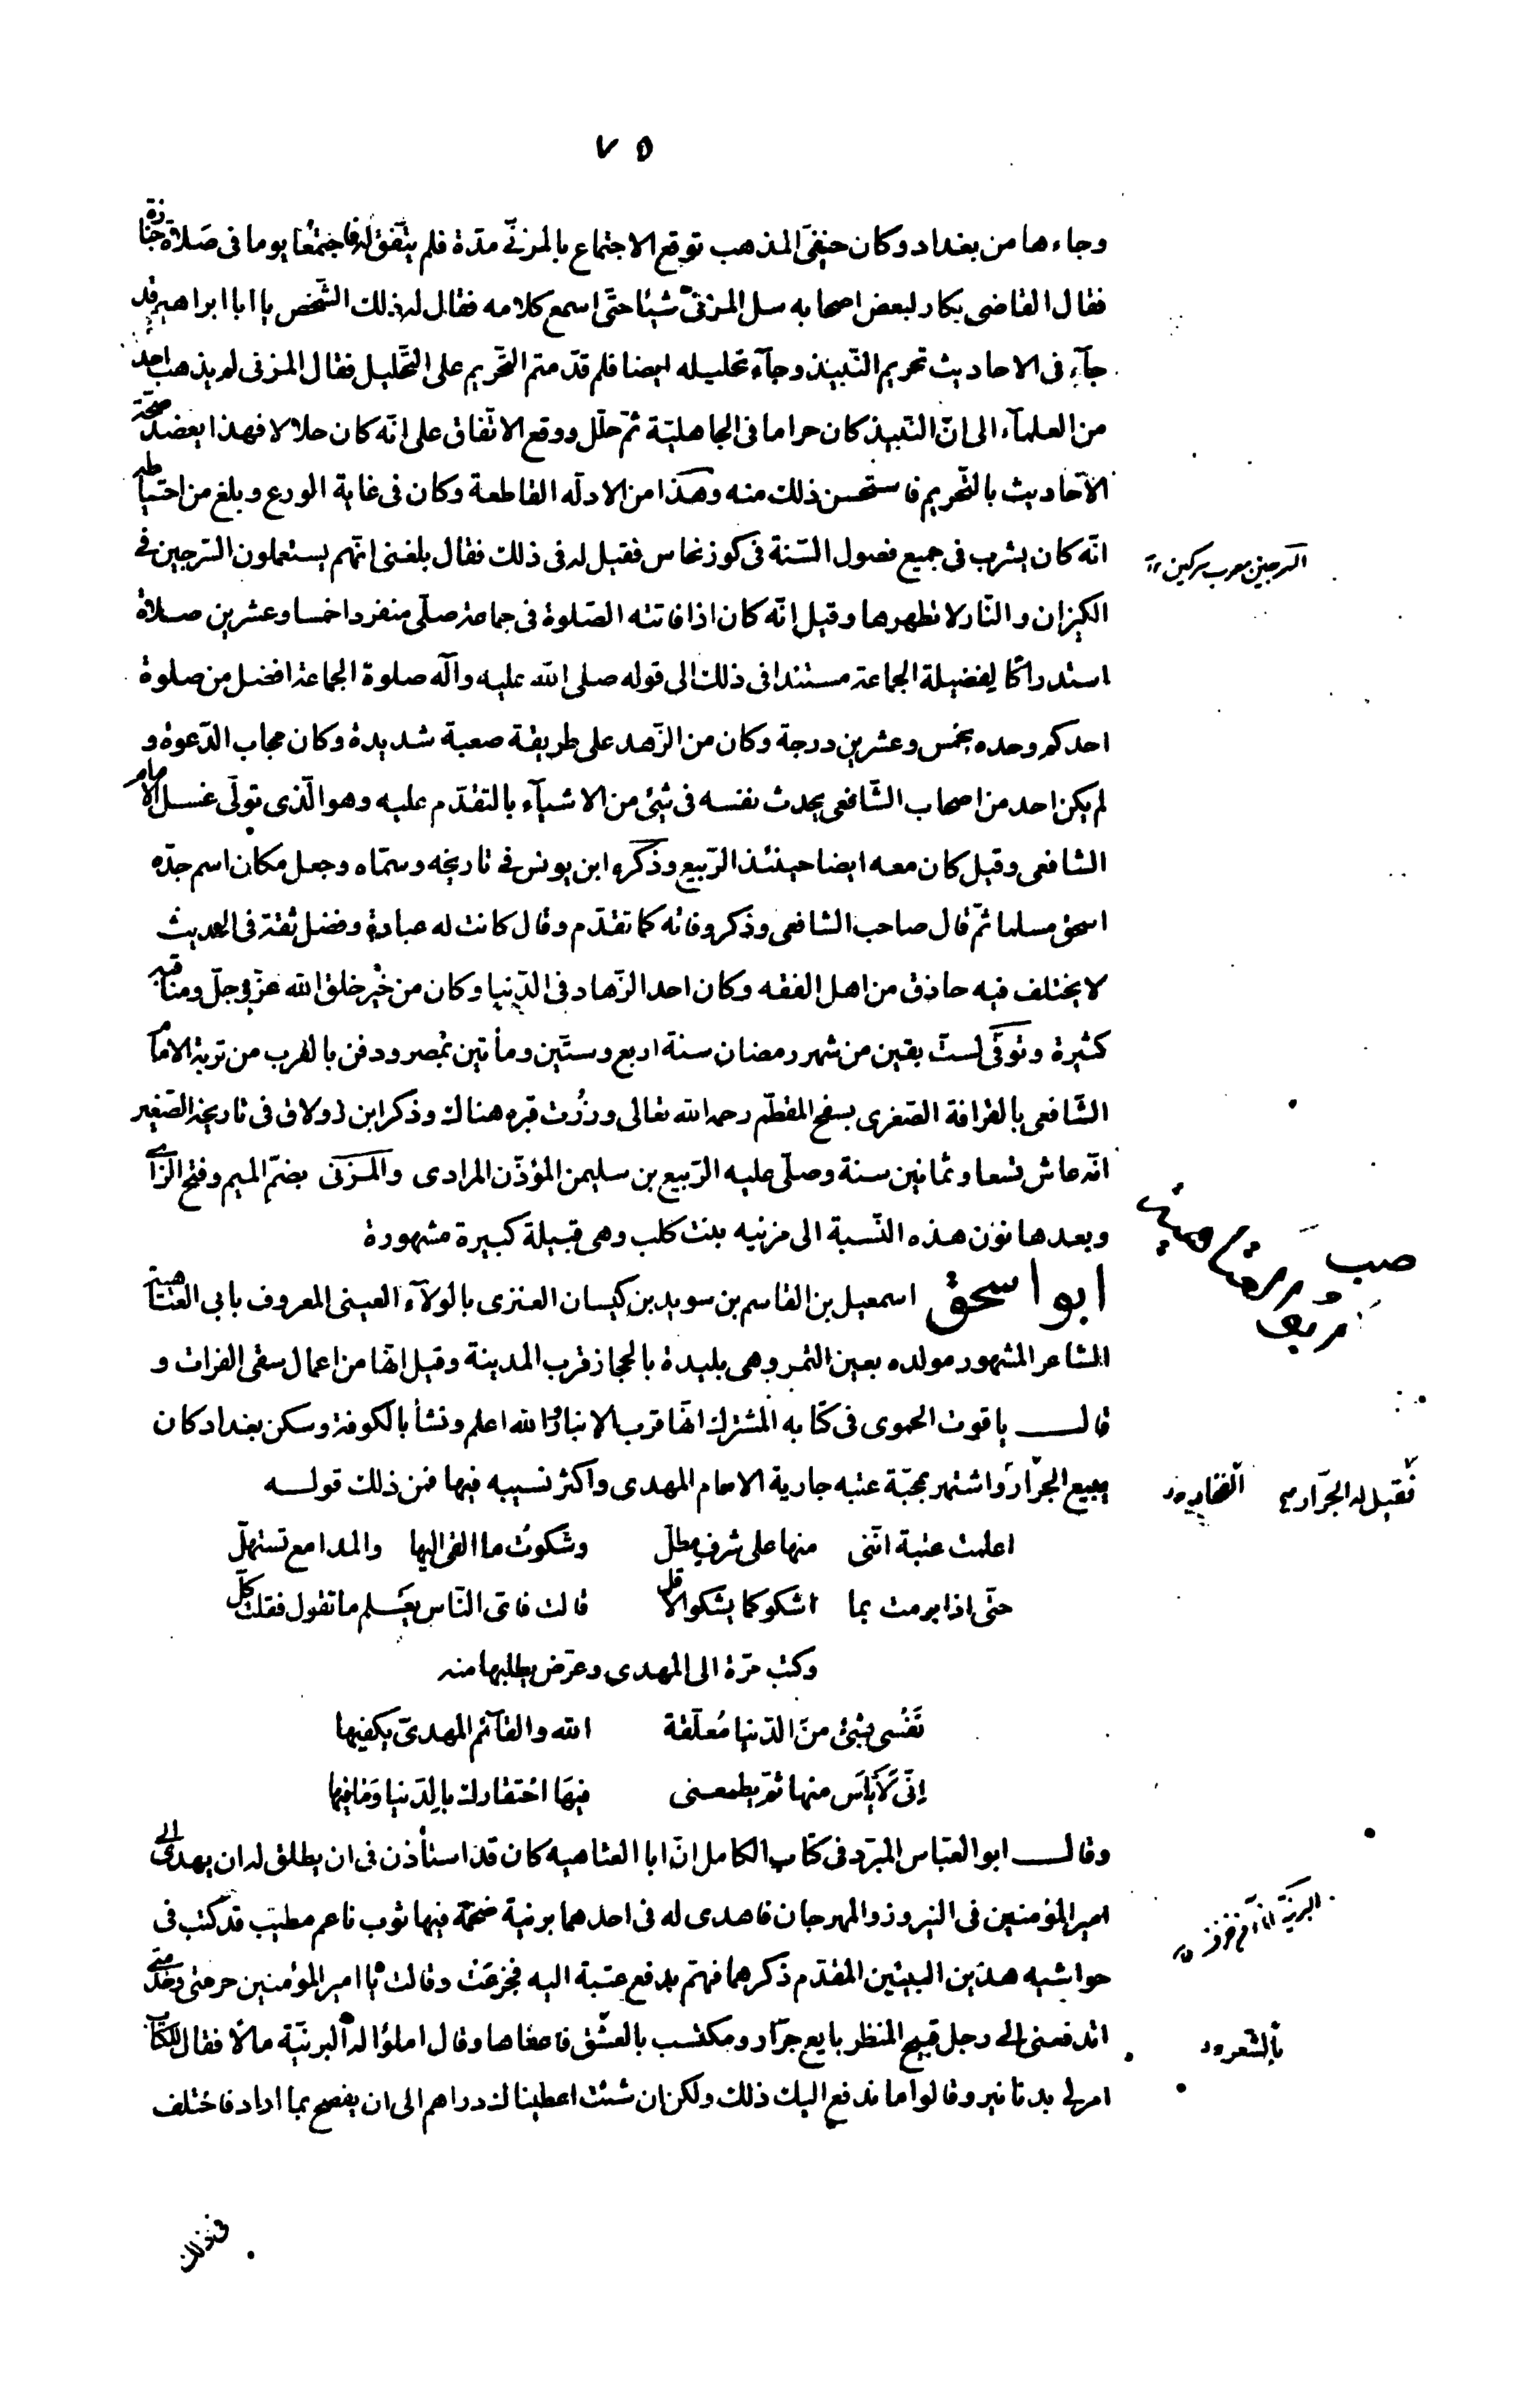 ٧٥
وجاءها من بغداد وكان حنفىّ المذهب توقع الاجتماع بالمزنىّ مدّة فلم يتّفق له فاجتمعا يوما فى صلاة جنازة
فقال القاضى بكار لبعض اصحابه سل المزنىّ شيئا حتّى اسمع كلامه فقال له ذلك الشّخص يا ابا ابراهيم قد
جآء فى الاحاديث تحريم النّبيذ وجآء تحليله ايضا فلم قدّمتم التّحريم على التّحليل فقال المزنى لم يذهب احد
من العلمآء الى انّ النّبيذ كان حراما فى الجاهليّة ثمّ حلّل ووقع الاتّفاق على انّه كان حلالا فهذا يعضد صحّة
الاحاديث بالتّحريم فاستحسن ذلك منه وهذا من الادلّه القاطعة وكان فى غاية الورع وبلغ من احتياطه
انّه كان يشرب فى جميع فصول السّنة فى كوز نحاس فقيل له فى ذلك فقال بلغنى انّهم يستعملون السّرجين فى
السرجين معرب سركين
الكيزان والنّار لا تطهرها وقيل انّه كان اذا فاتته الصّلوة فى جماعة صلّى منفردا خمسا وعشرين صلاة
استدراكا لفضيلة الجماعة مستندا فى ذلك الى قوله صلى الله عليه وآله صلوة الجماعة افضل من صلوة
احدكم وحده بخمس وعشرين درجة وكان من الزّهد على طريقة صعبة شديدة وكان مجاب الدّعوة و
لم يكن احد من اصحاب الشّافعى يحدث نفسه فى شئ من الاشيآء بالتقدّم عليه وهو الّذى تولّى غسل الامام
الشافعى وقيل كان معه ايضا حينئذ الرّبيع وذكره ابن يونس فى تاريخه وسمّاه وجعل مكان اسم جدّه
اسحق مسلما ثمّ قال صاحب الشافعى وذكر وفاته كما تقدّم وقال كانت له عبادة وفضل ثقة فى الحديث
لا يختلف فيه حاذق من اهل الفقه وكان احد الزّهاد فى الدّنيا وكان من خير خلق الله عزّ وجلّ ومناقبه
كثيرة وتوفّى لستّ بقين من شهر رمضان سنة اربع وستّين ومأتين بمصر ودفن بالقرب من تربة الامام
الشّافعى بالقرافة الصّغرى بسفح المقطّم رحمه الله تعالى وزُرت قبره هناك وذكر ابن زولاق فى تاريخه الصّغير
انّه عاش تسعا وثمانين سنة وصلّى عليه الرّبيع بن سليمن المؤذّن المرادى والمزنى بضمّ الميم وفتح الزّاى
وبعدها نون هذه النّسبة الى مزنيه بنت كلب وهى قبيلة كبيرة مشهورة
ابو اسحق اسمعيل بن القاسم بن سويد بن كيسان العنزى بالولآء العينى المعروف بابى العتاهية
الشاعر المشهور مولده بعين التمر وهى بليدة بالحجاز قرب المدينة وقيل انّها من اعمال سقى الفرات و
قال ياقوت الحموى فى كتابه المشترك انّها قرب الانبار والله اعلم ونشأ بالكوفة وسكن بغداد كان
يبيع الجرّار واشتهر بمحبّة عتبه جارية الامام المهدى واكثر نسيبه فيها فمن ذلك قوله
فقيل له الجرّار
اعلمت عتبة انّنى منها على شرف مطلّ وشكوت ما القى اليها والمدامع تستهلّ
حتّى اذا برمت بما اشكو كما يشكو الاقلّ قالت فاىّ النّاس يعلم ما تقول فقلت كلّ
وكتب مرّة الى المهدى وعرّض بطلبها منه
نَفْسى بشئ منَ الدّنيا مُعلّقة الله والقآئم المهدىّ يكفيها
اِنّى لَأيأس منها ثمّ يطمعنى فيهَا احْتقارك بالدّنيا وَمَا فيها
وقال ابو العبّاس المبرّد فى كتاب الكامل انّ ابا العتاهيه كان قد استأذن فى ان يطلق له ان يهدى الى
امير المؤمنين فى النيروز والمهرجان فاهدى له فى احدهما برنية ضخمة فيها ثوب ناعم مطيّب قد كتب فى
حواشيه هذين البيتين المقدّم ذكرهما فهمّ بدفع عتبة اليه فجزعت وقالت يا امير المؤمنين حرمتى وخدمتى
اتدفعنى الى رجل قبيح المنظر بايع جرّار ومكتسب بالعشّق فاعفاها وقال املؤا له البرنيّة مالا فقال للكتّاب
بالشعر
امر لى بدنانير وقالوا ما ندفع اليك ذلك ولكن ان شئت اعطيناك دراهم الى ان يفصح بما اراد فاختلف
فى ذلك